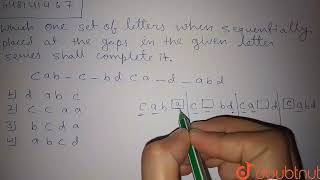 which one set of letters when sequentially
placed at the gaps in the given letter
series shall complete it.
c a b - c - b d c a - d - a b d
1) d a b c
2) c c a a
3) b c d a
4) a b c d
c a b a | c bd | c a d | c a b d
doubtnut